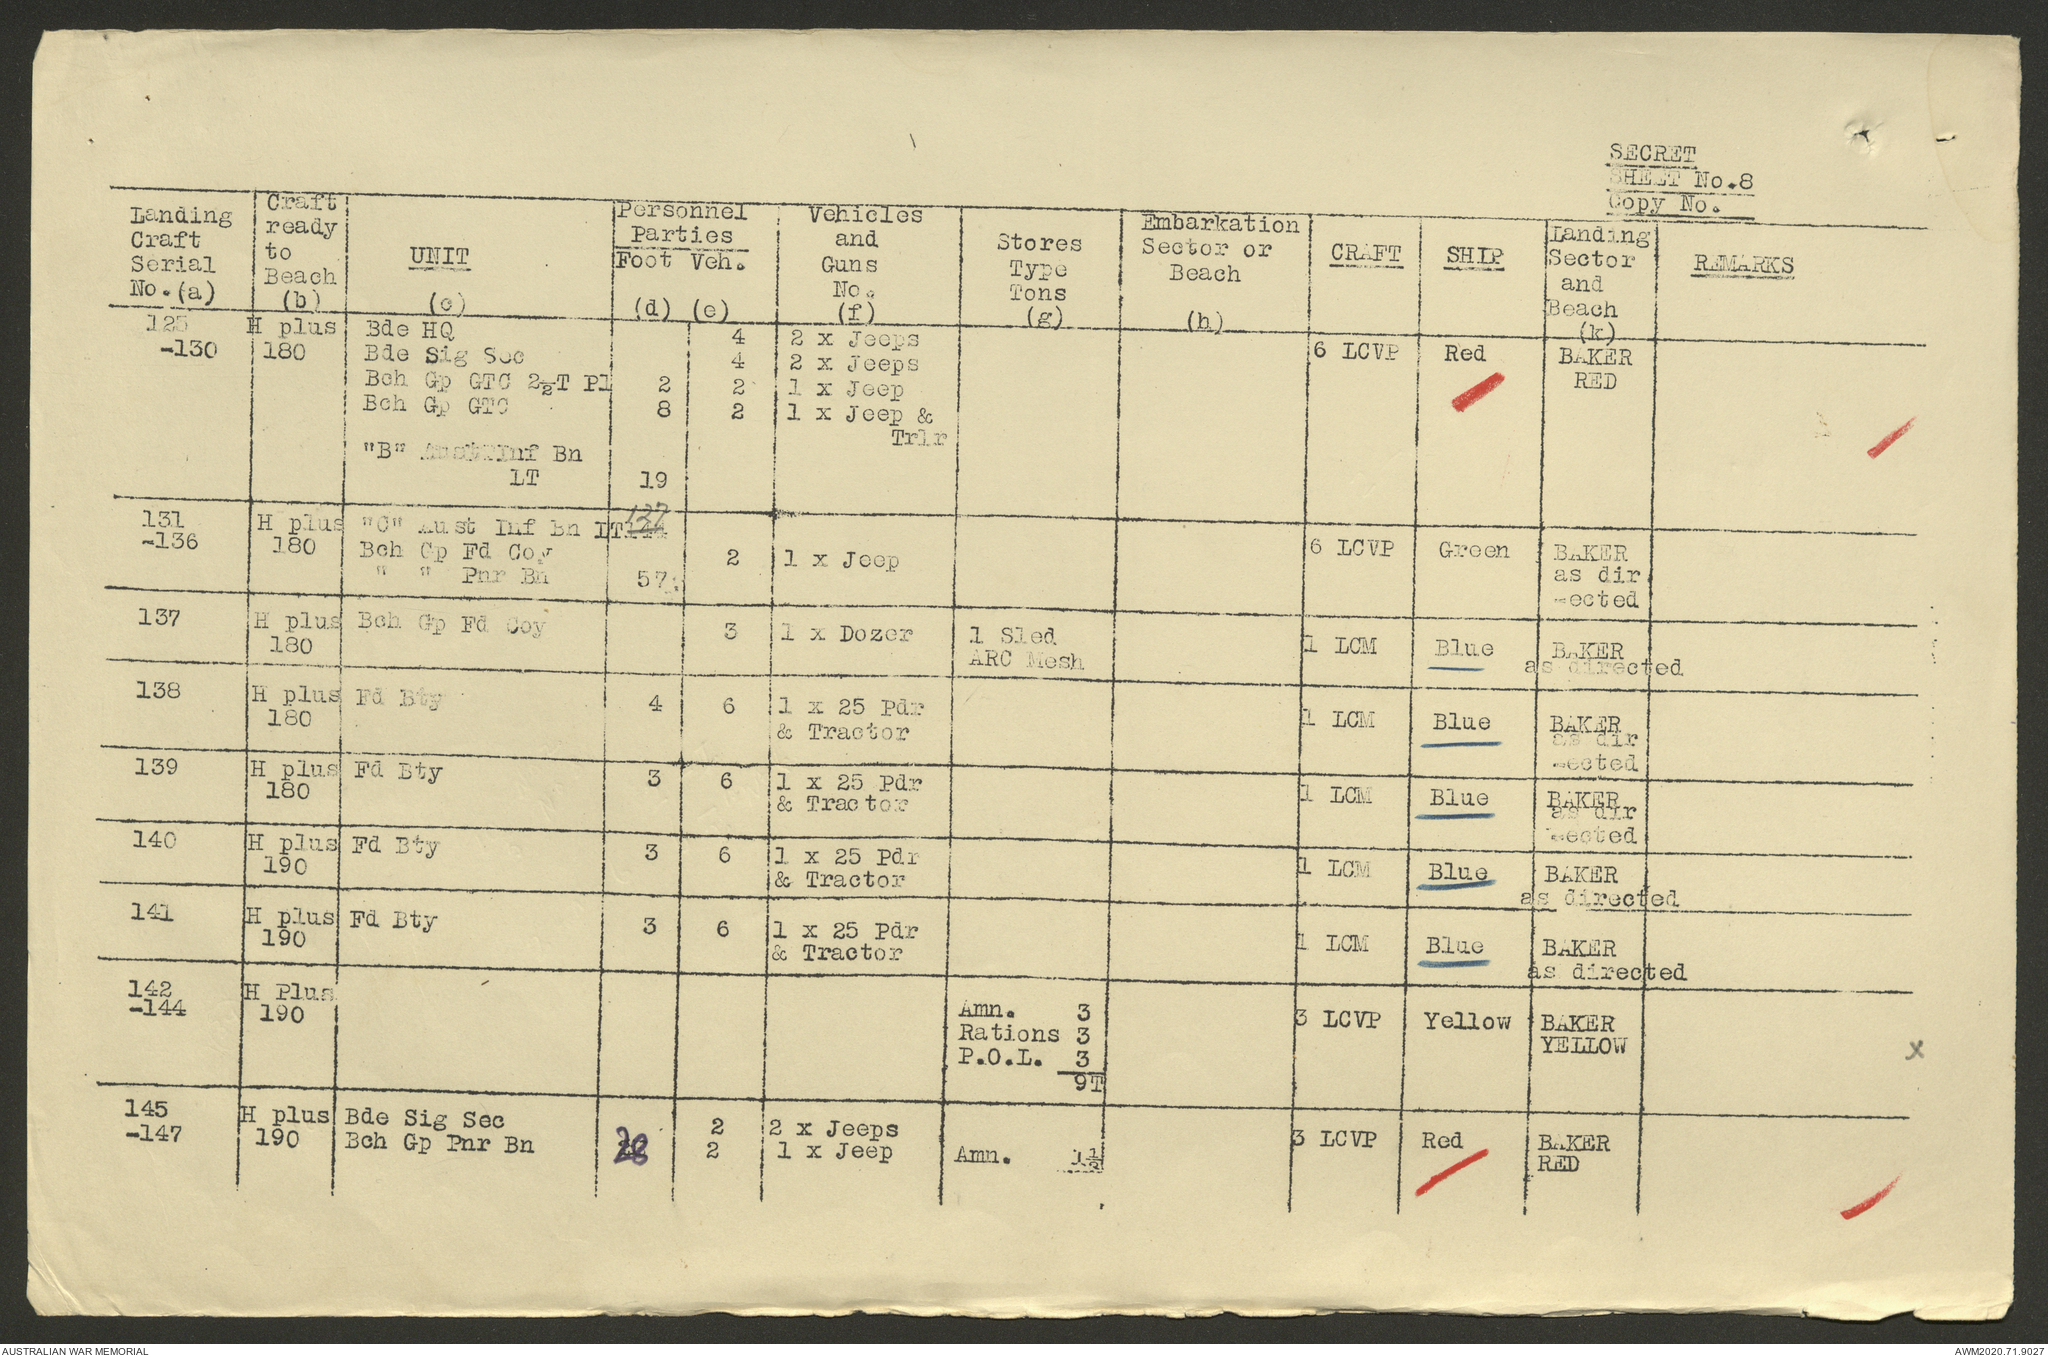 SECRET
SHEET No.8
Copy No.
Landing Craft Serial No.(a) | Craft ready to Beach (b) | UNIT (c) | Personnel Parties Foot (d) Veh. (e) | Vehicles and Guns No. (f) | Stores Type Tons (g) | Embarkation Sector or Beach (h) | CRAFT | SHIP | Landing Sector and Beach (k) | REMARKS
125 H plus Bde HQ 4 2 x Jeeps 6 LCVP Red BAKER
-130 180 Bde Sig Sec 4 2 x Jeeps RED
Bch Gp GTC 2½T Pl 2 2 1 x Jeep
Bch Gp GTC 8 2 1 x Jeep &
Trlr
"B" Aust Inf Bn
LT 19
131 H plus "C" Aust Inf Bn LT 137 6 LCVP Green BAKER
-136 180 Bch Gp Fd Coy 2 1 x Jeep as dir
" " Pnr Bn 57 -ected
137 H plus Bch Gp Fd Coy 3 1 x Dozer 1 Sled 1 LCM Blue BAKER
180 ARC Mesh as directed
138 H plus Fd Bty 4 6 1 x 25 Pdr 1 LCM Blue BAKER
180 & Tractor as dir
-ected
139 H plus Fd Bty 3 6 1 x 25 Pdr 1 LCM Blue BAKER
180 & Tractor as dir
-ected
140 H plus Fd Bty 3 6 1 x 25 Pdr 1 LCM Blue BAKER
190 & Tractor as directed
141 H plus Fd Bty 3 6 1 x 25 Pdr 1 LCM Blue BAKER
190 & Tractor as directed
142 H Plus Amn. 3 3 LCVP Yellow BAKER
-144 190 Rations 3 YELLOW x
P.O.L. 3
9T
145 H plus Bde Sig Sec 2 2 x Jeeps 3 LCVP Red BAKER
-147 190 Bch Gp Pnr Bn 2 1 x Jeep Amn. 1½ RED
AUSTRALIAN WAR MEMORIAL
AWM2020.71.9027